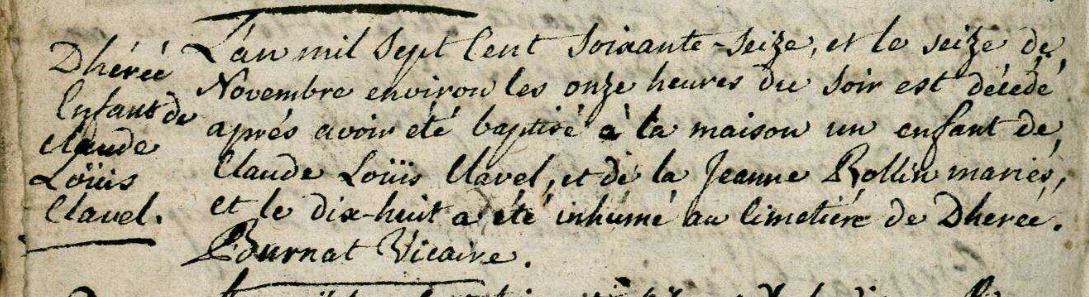 Dhéréé
Enfant de
Claude
Loüis
Clavel.
L'an mil Sept Cent Soixante-Seize, et le seize de
Novembre environ les onze heures du Soir est décédé
aprés avoir été baptisé à la maison un enfant de
Claude Loüis Clavel, et de la Jeanne Rollin mariés,
et le dix-huit a été inhumé au Cimetiére de Dhereé.
Bournat Vicaire.